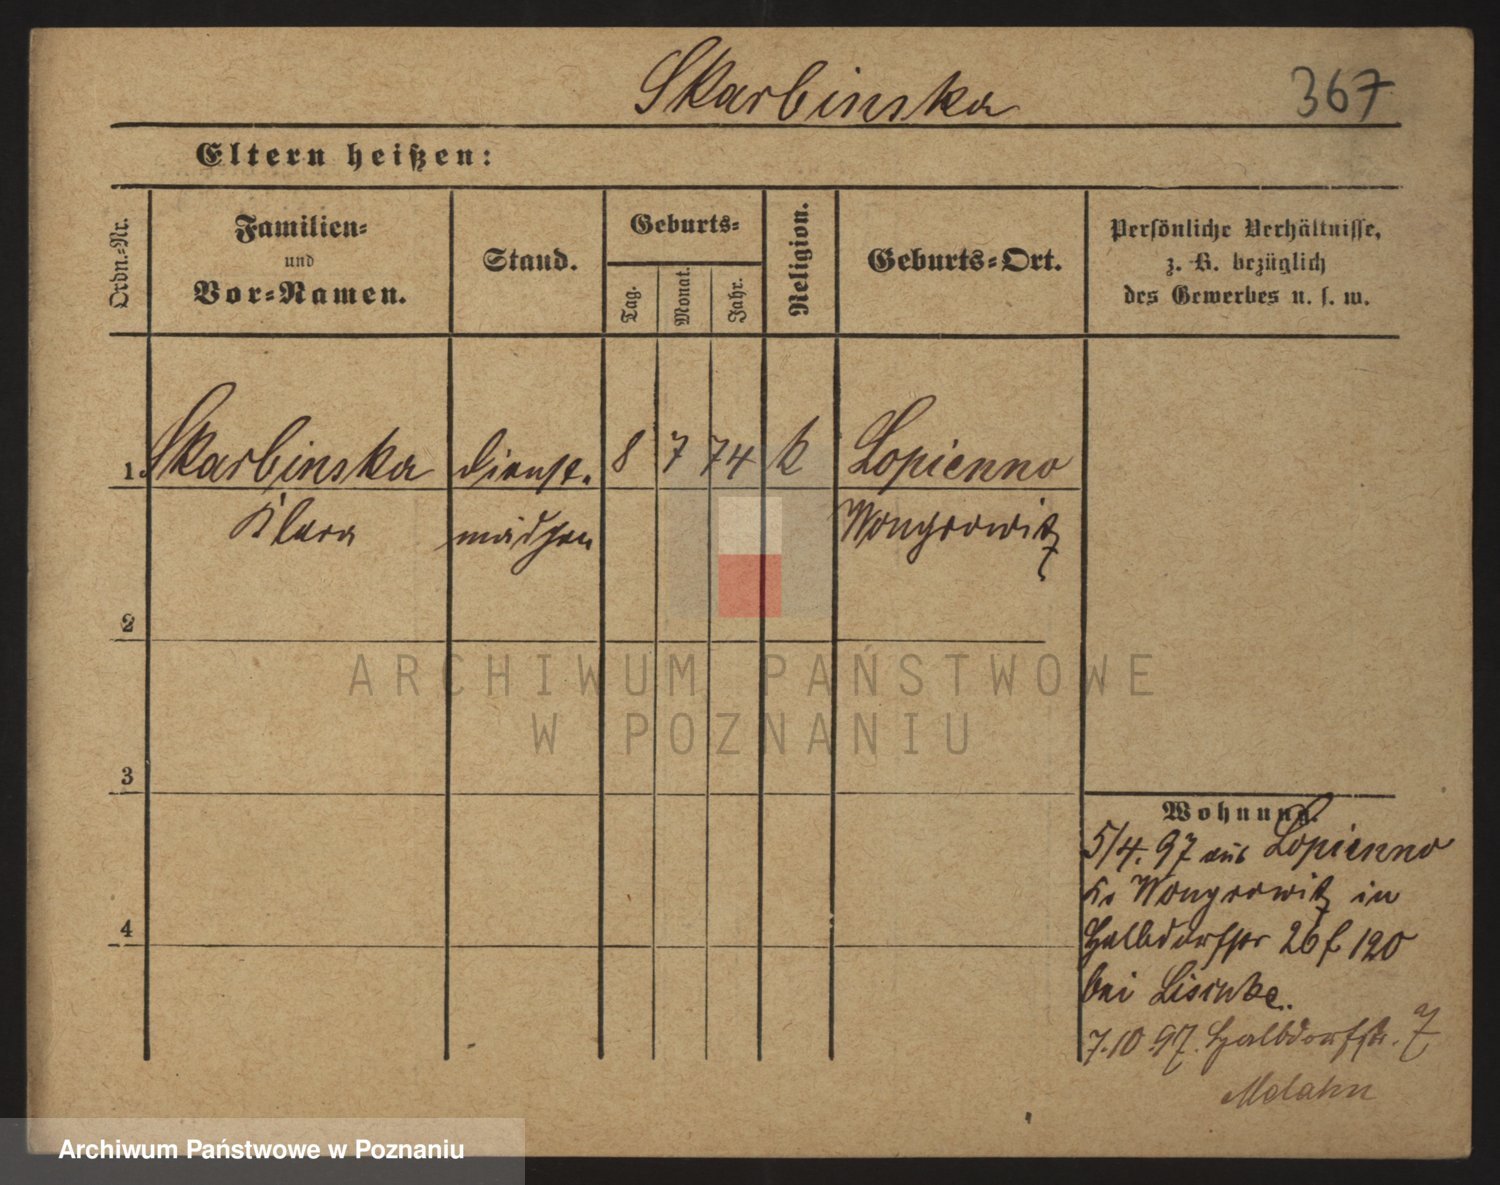 Skarbinska 367
Eltern heißen:
Ordn.-Nr.
Familien-
und
Vor-Namen.
Stand.
Geburts-
Tag.
Monat.
Jahr.
Religion.
Geburts-Ort.
Persönliche Verhältnisse,
z. B. bezüglich
des Gewerbes u. s. w.
1. Skarbinska Dienst. 8 7 74 k Lopienno
Klara mädchen Wongrowitz
2
3
4
ARCHIWUM PAŃSTWOWE
W POZNANIU
Wohnung.
5/4. 97 aus Lopienno
Kr Wongrowitz in
Halbdorfstr 26 120
bei
7.10.97. Halbdorfstr. 7
Archiwum Państwowe w Poznaniu